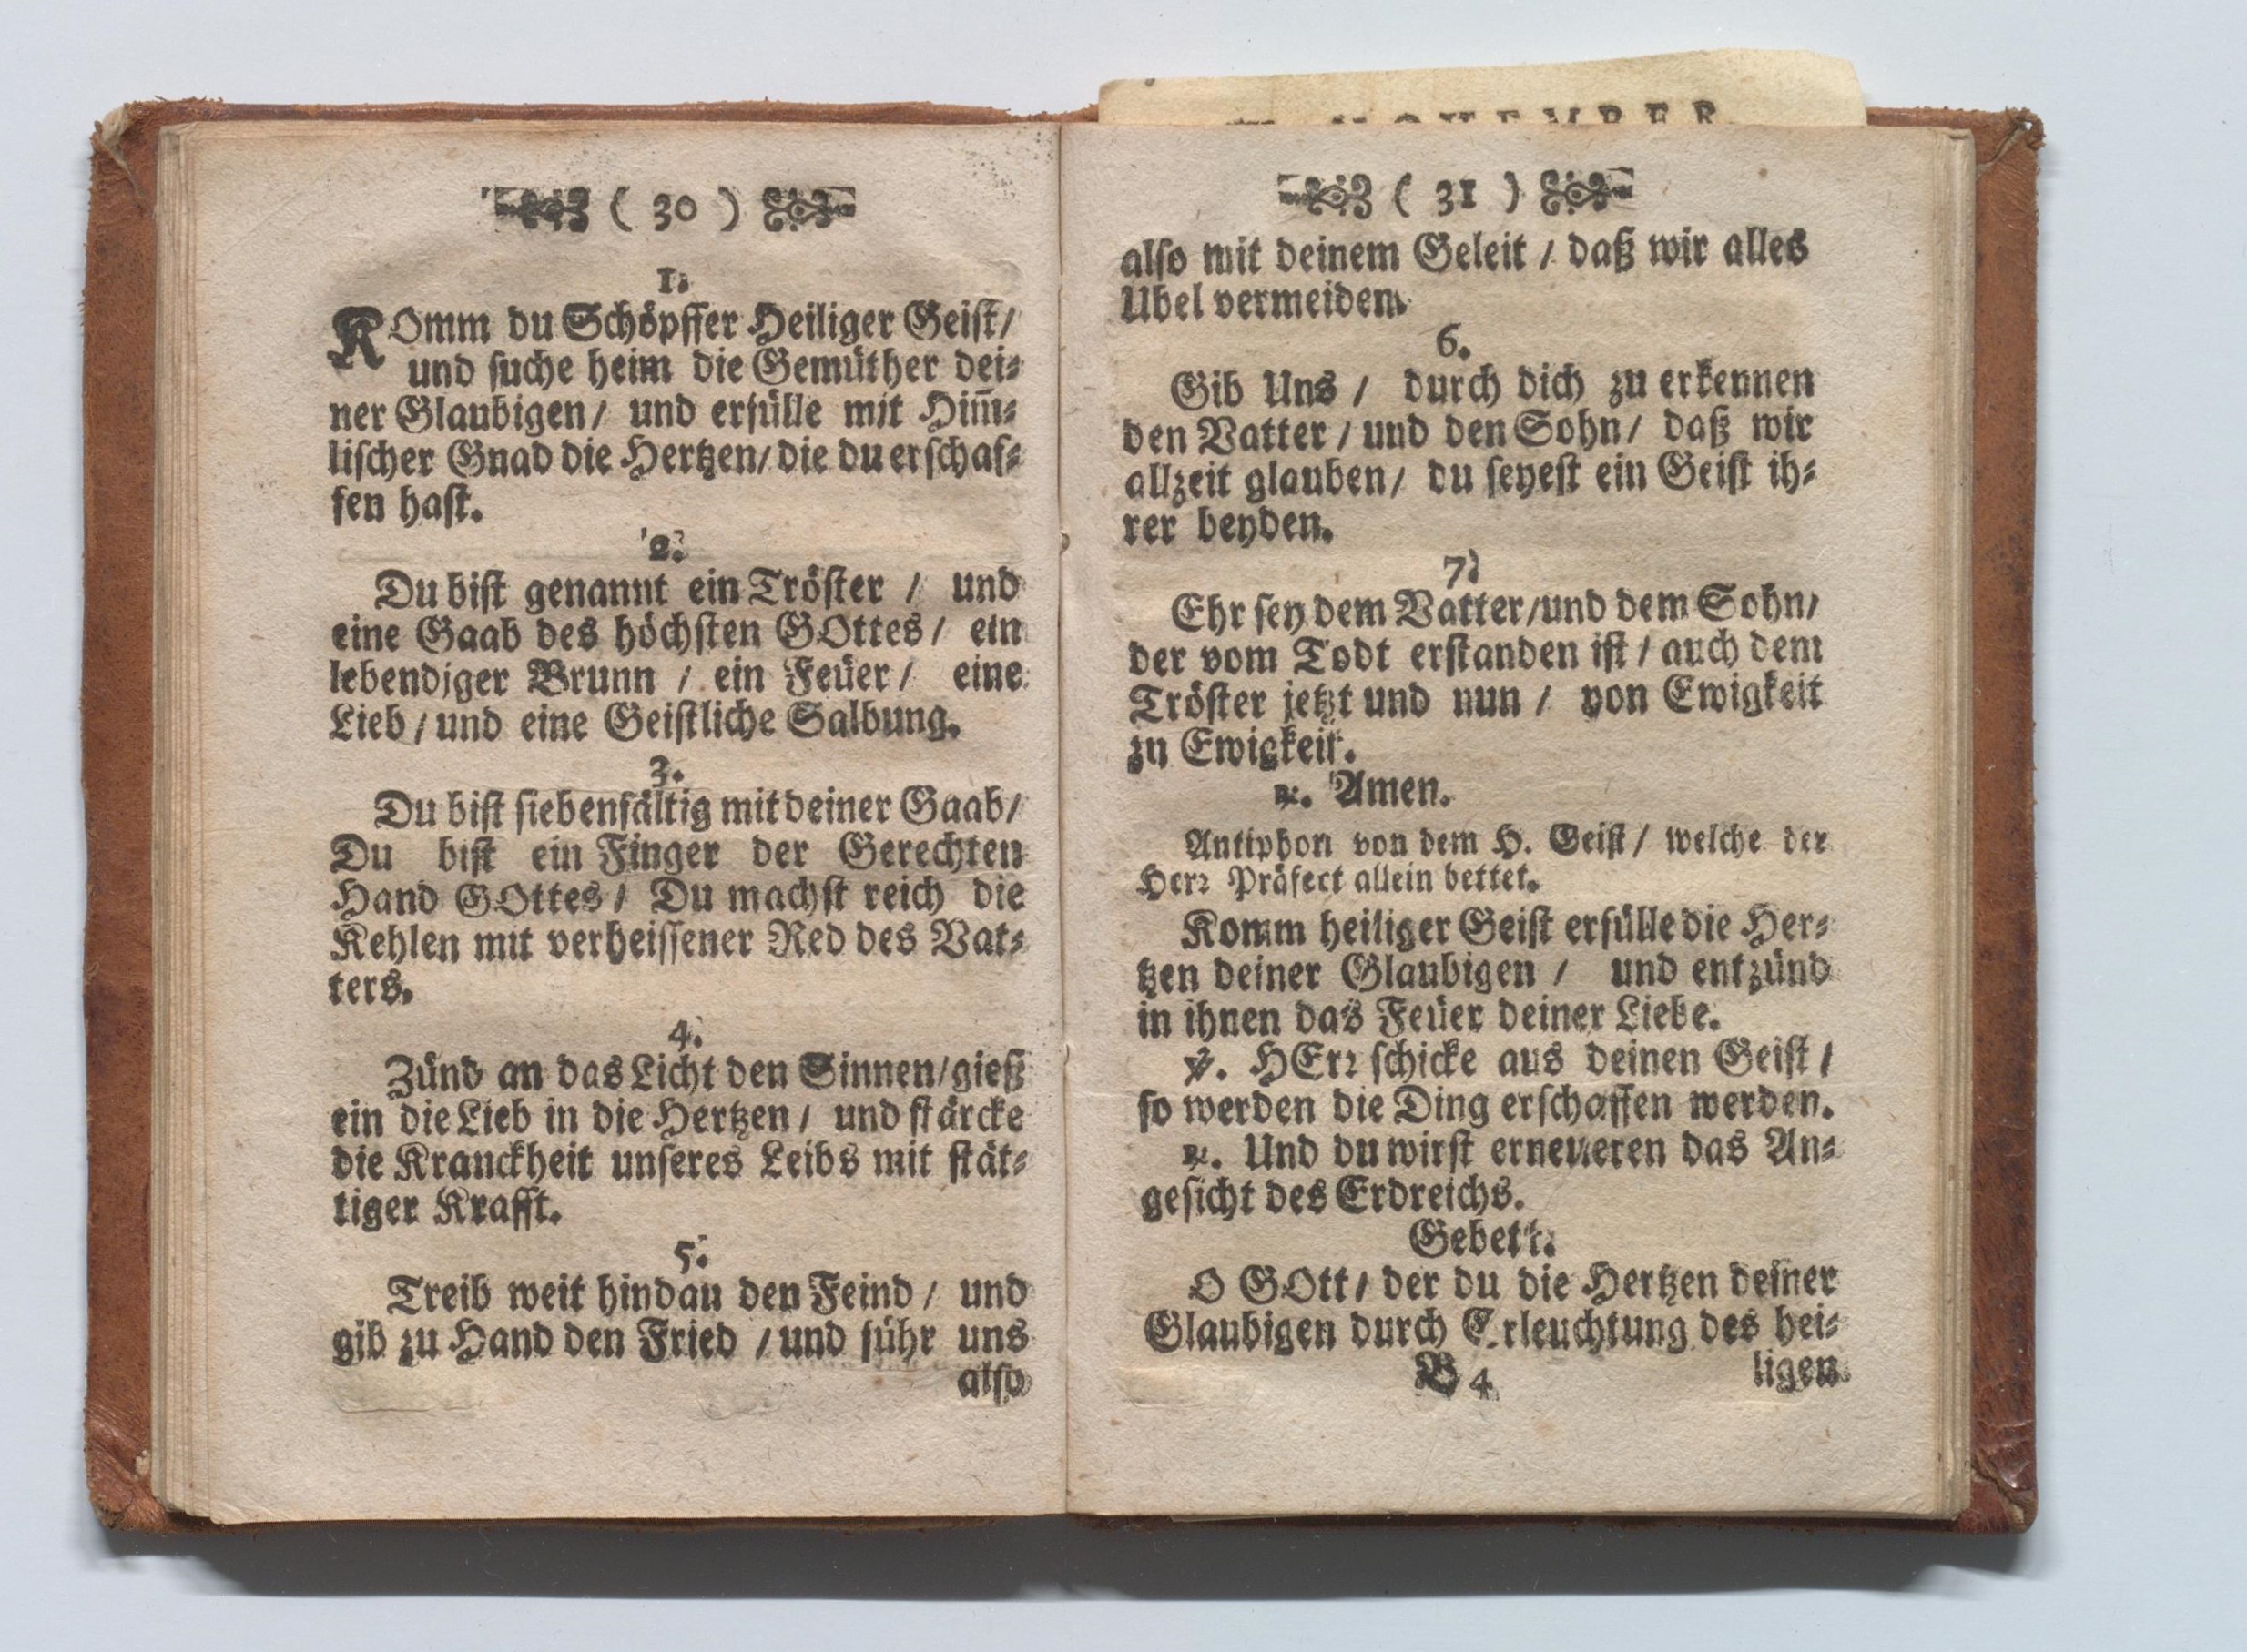 ( 30 )
1.
KOmm du Schöpffer Heiliger Geist/
und suche heim die Gemüther dei⸗
ner Glaubigen/ und erfülle mit Him̄⸗
lischer Gnad die Hertzen/ die du erschaf⸗
fen hast.
2.
Du bist genannt ein Tröster / und
eine Gaab des höchsten GOttes/ ein
lebendiger Brunn / ein Feüer/ eine
Lieb/ und eine Geistliche Salbung.
3.
Du bist siebenfältig mit deiner Gaab/
Du bist ein Finger der Gerechten
Hand GOttes/ Du machst reich die
Kehlen mit verheissener Red des Vat⸗
ters.
4.
Zünd an das Licht den Sinnen/ gieß
ein die Lieb in die Hertzen/ und stärcke
die Kranckheit unseres Leibs mit stät⸗
tiger Krafft.
5.
Treib weit hindan den Feind/ und
gib zu Hand den Fried / und führ uns
also
NOVEMBER
( 31 )
also mit deinem Geleit / daß wir alles
Ubel vermeiden.
6.
Gib Uns / durch dich zu erkennen
den Vatter / und den Sohn/ daß wir
allzeit glauben/ du seyest ein Geist ih⸗
rer beyden.
7.
Ehr sey dem Vatter/und dem Sohn/
der vom Todt erstanden ist / auch dem
Tröster jetzt und nun / von Ewigkeit
zu Ewigkeit.
℟. Amen.
Antiphon von dem H. Geist/ welche der
Herꝛ Präfect allein bettet.
Komm heiliger Geist erfülle die Her⸗
tzen deiner Glaubigen / und entzünd
in ihnen das Feüer deiner Liebe.
℣. HErꝛ schicke aus deinen Geist /
so werden die Ding erschaffen werden.
℟. Und du wirst erneueren das An⸗
gesicht des Erdreichs.
Gebett.
O GOtt/ der du die Hertzen deiner
Glaubigen durch Erleuchtung des hei⸗
B 4 ligen